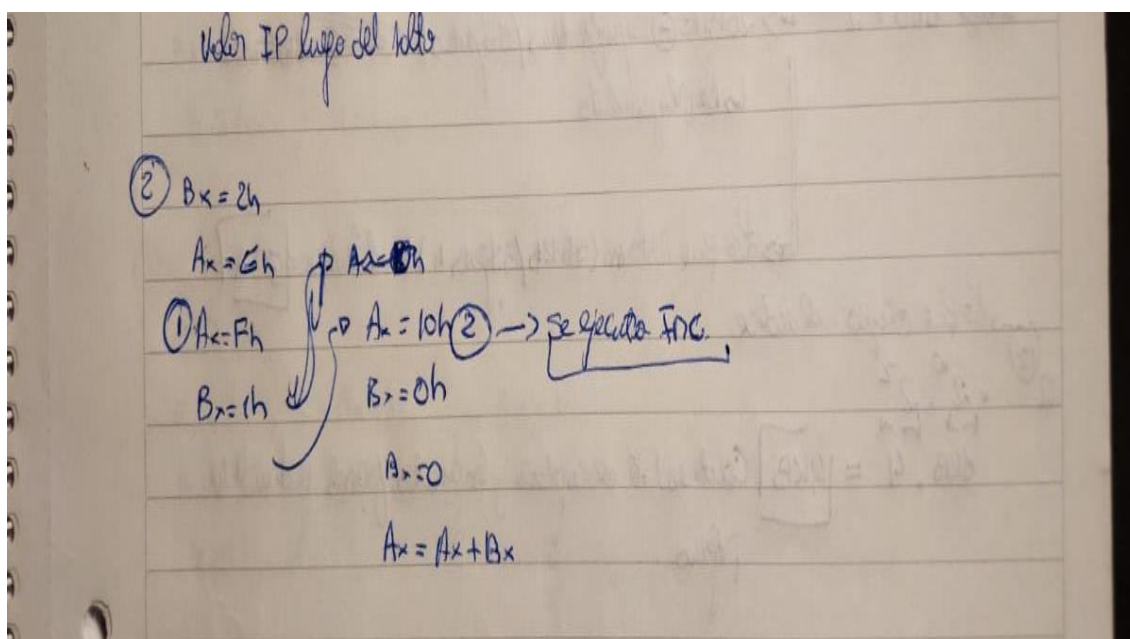 Valor IP luego del salto
② Bx = 2h
Ax = Eh
① Ax = Fh
Bx = 1h
Ax = h
Ax = 10h ② → Se ejecuta Inc.
Bx = 0h
Bx = 0
Ax = Ax + Bx